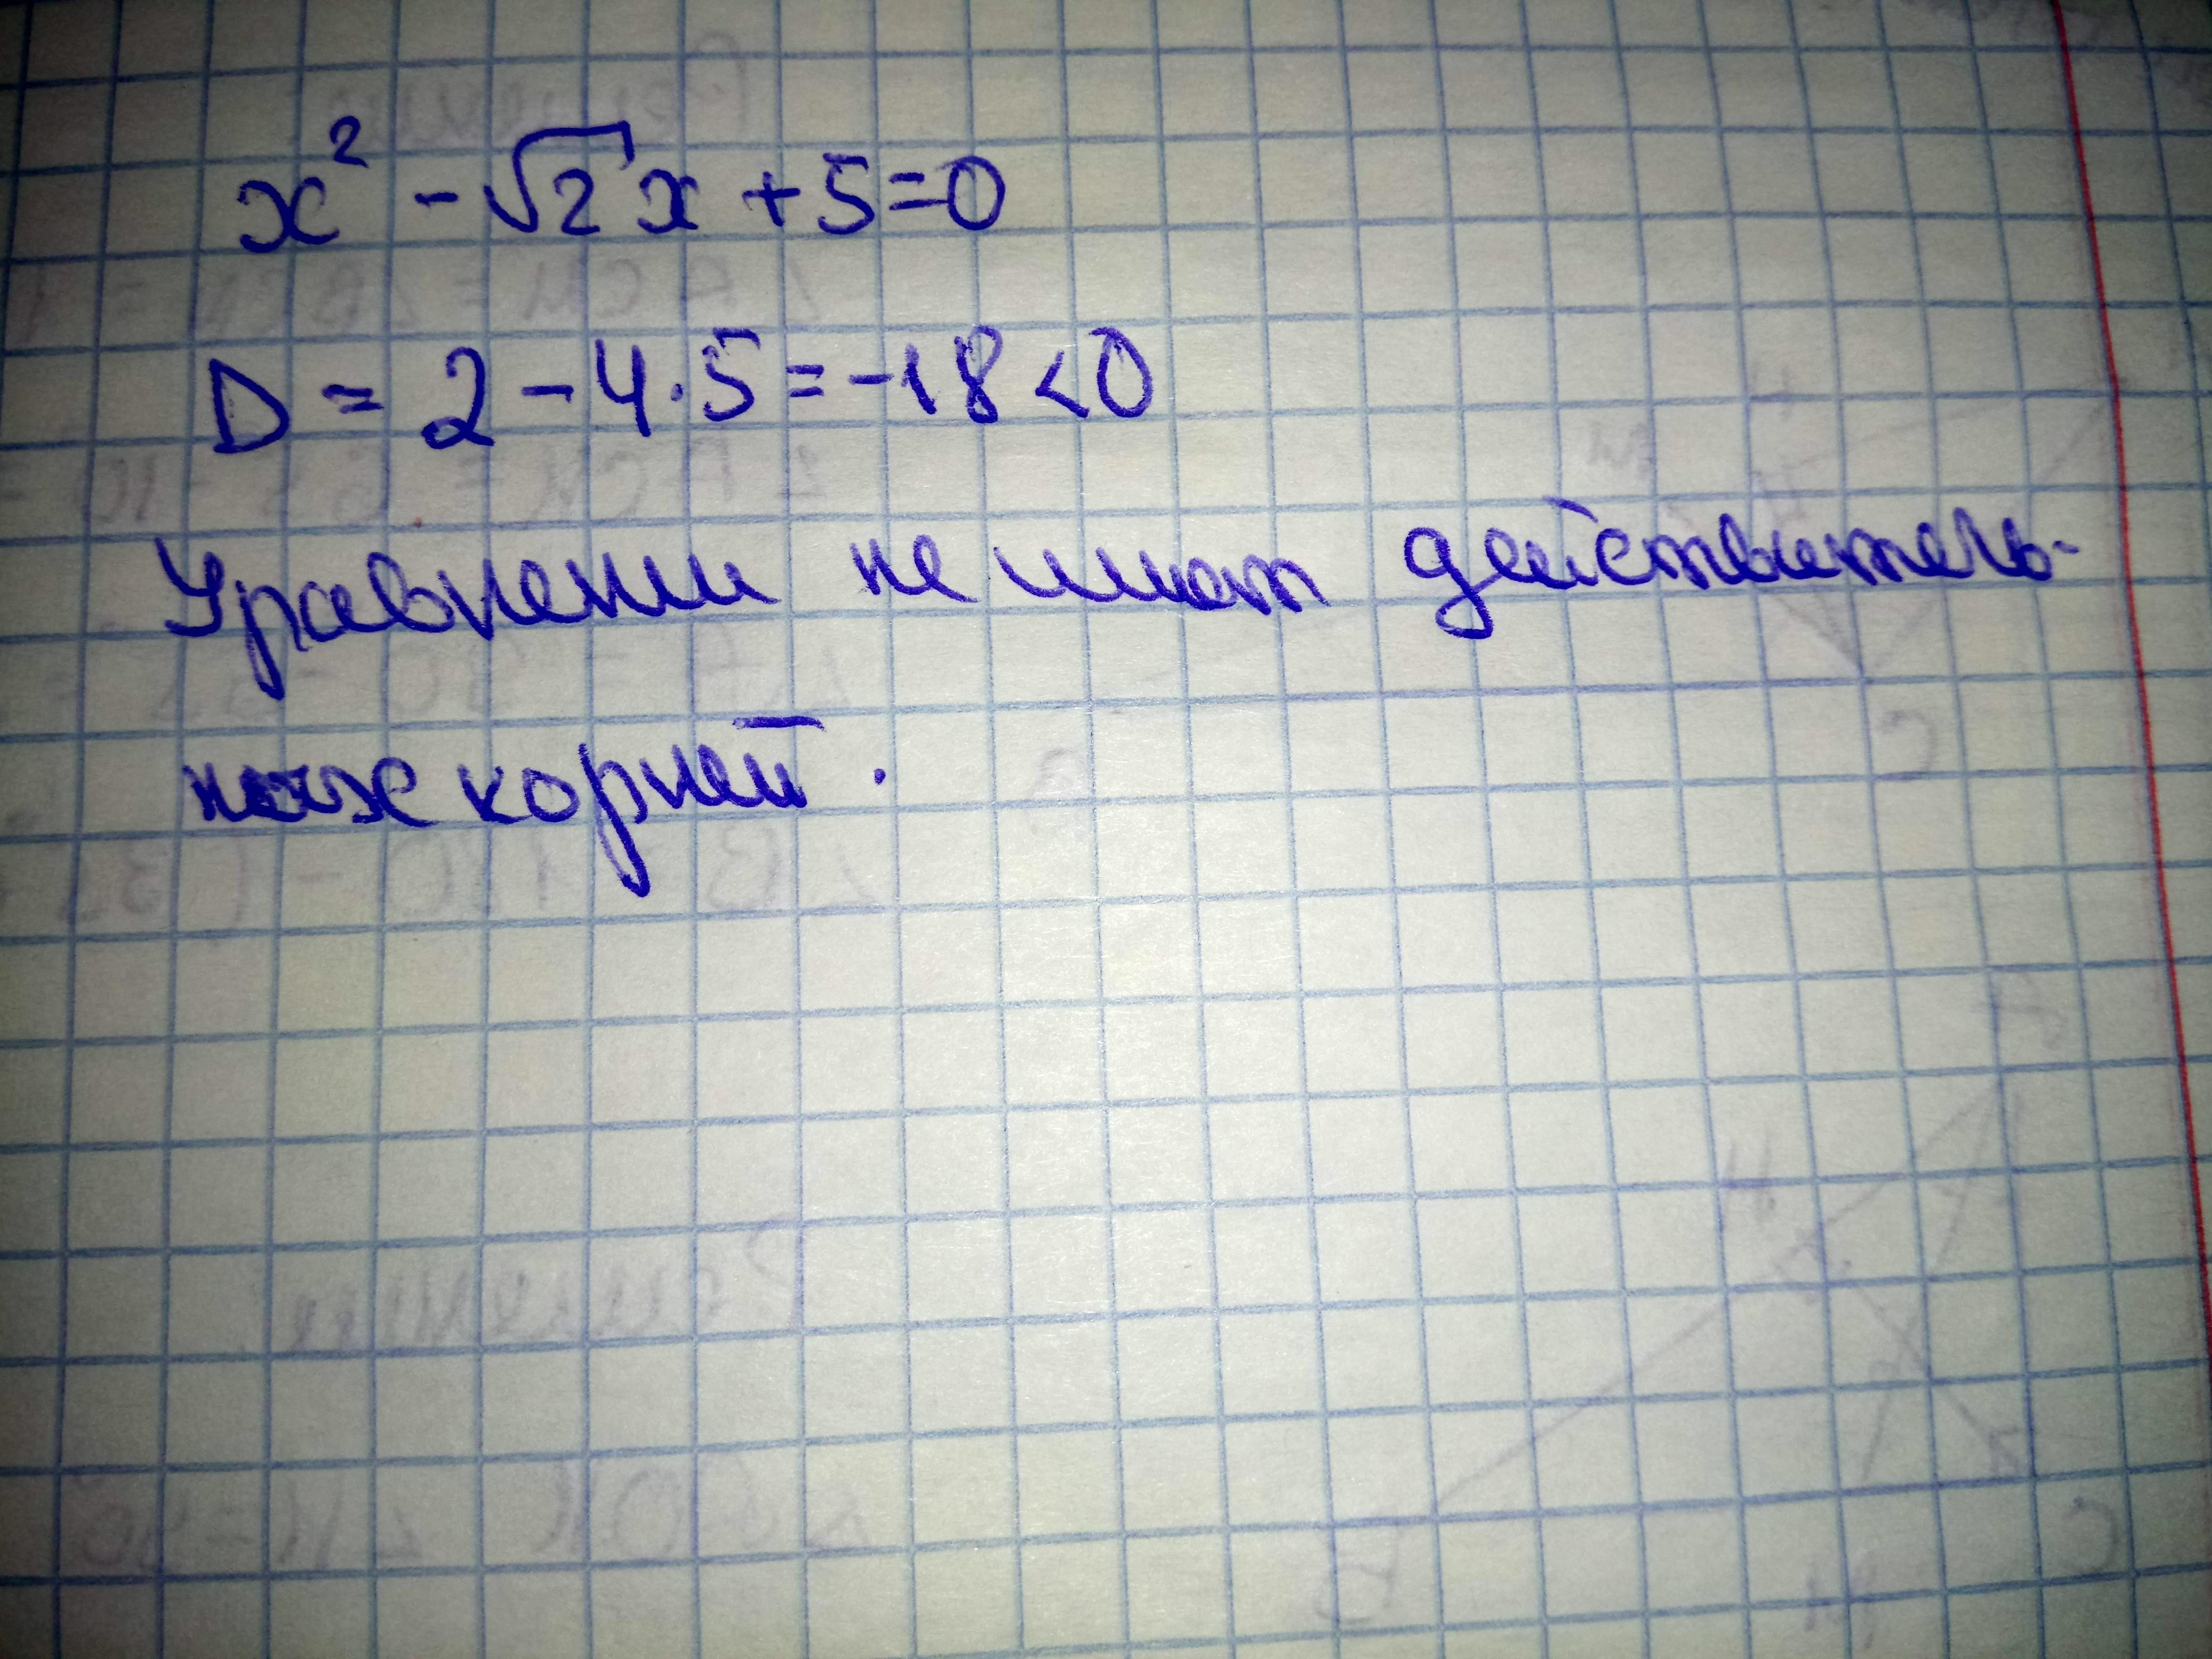 x² - √2 x + 5 = 0
D = 2 - 4 · 5 = -18 < 0
Уравнение не имеет действитель-
ных корней.